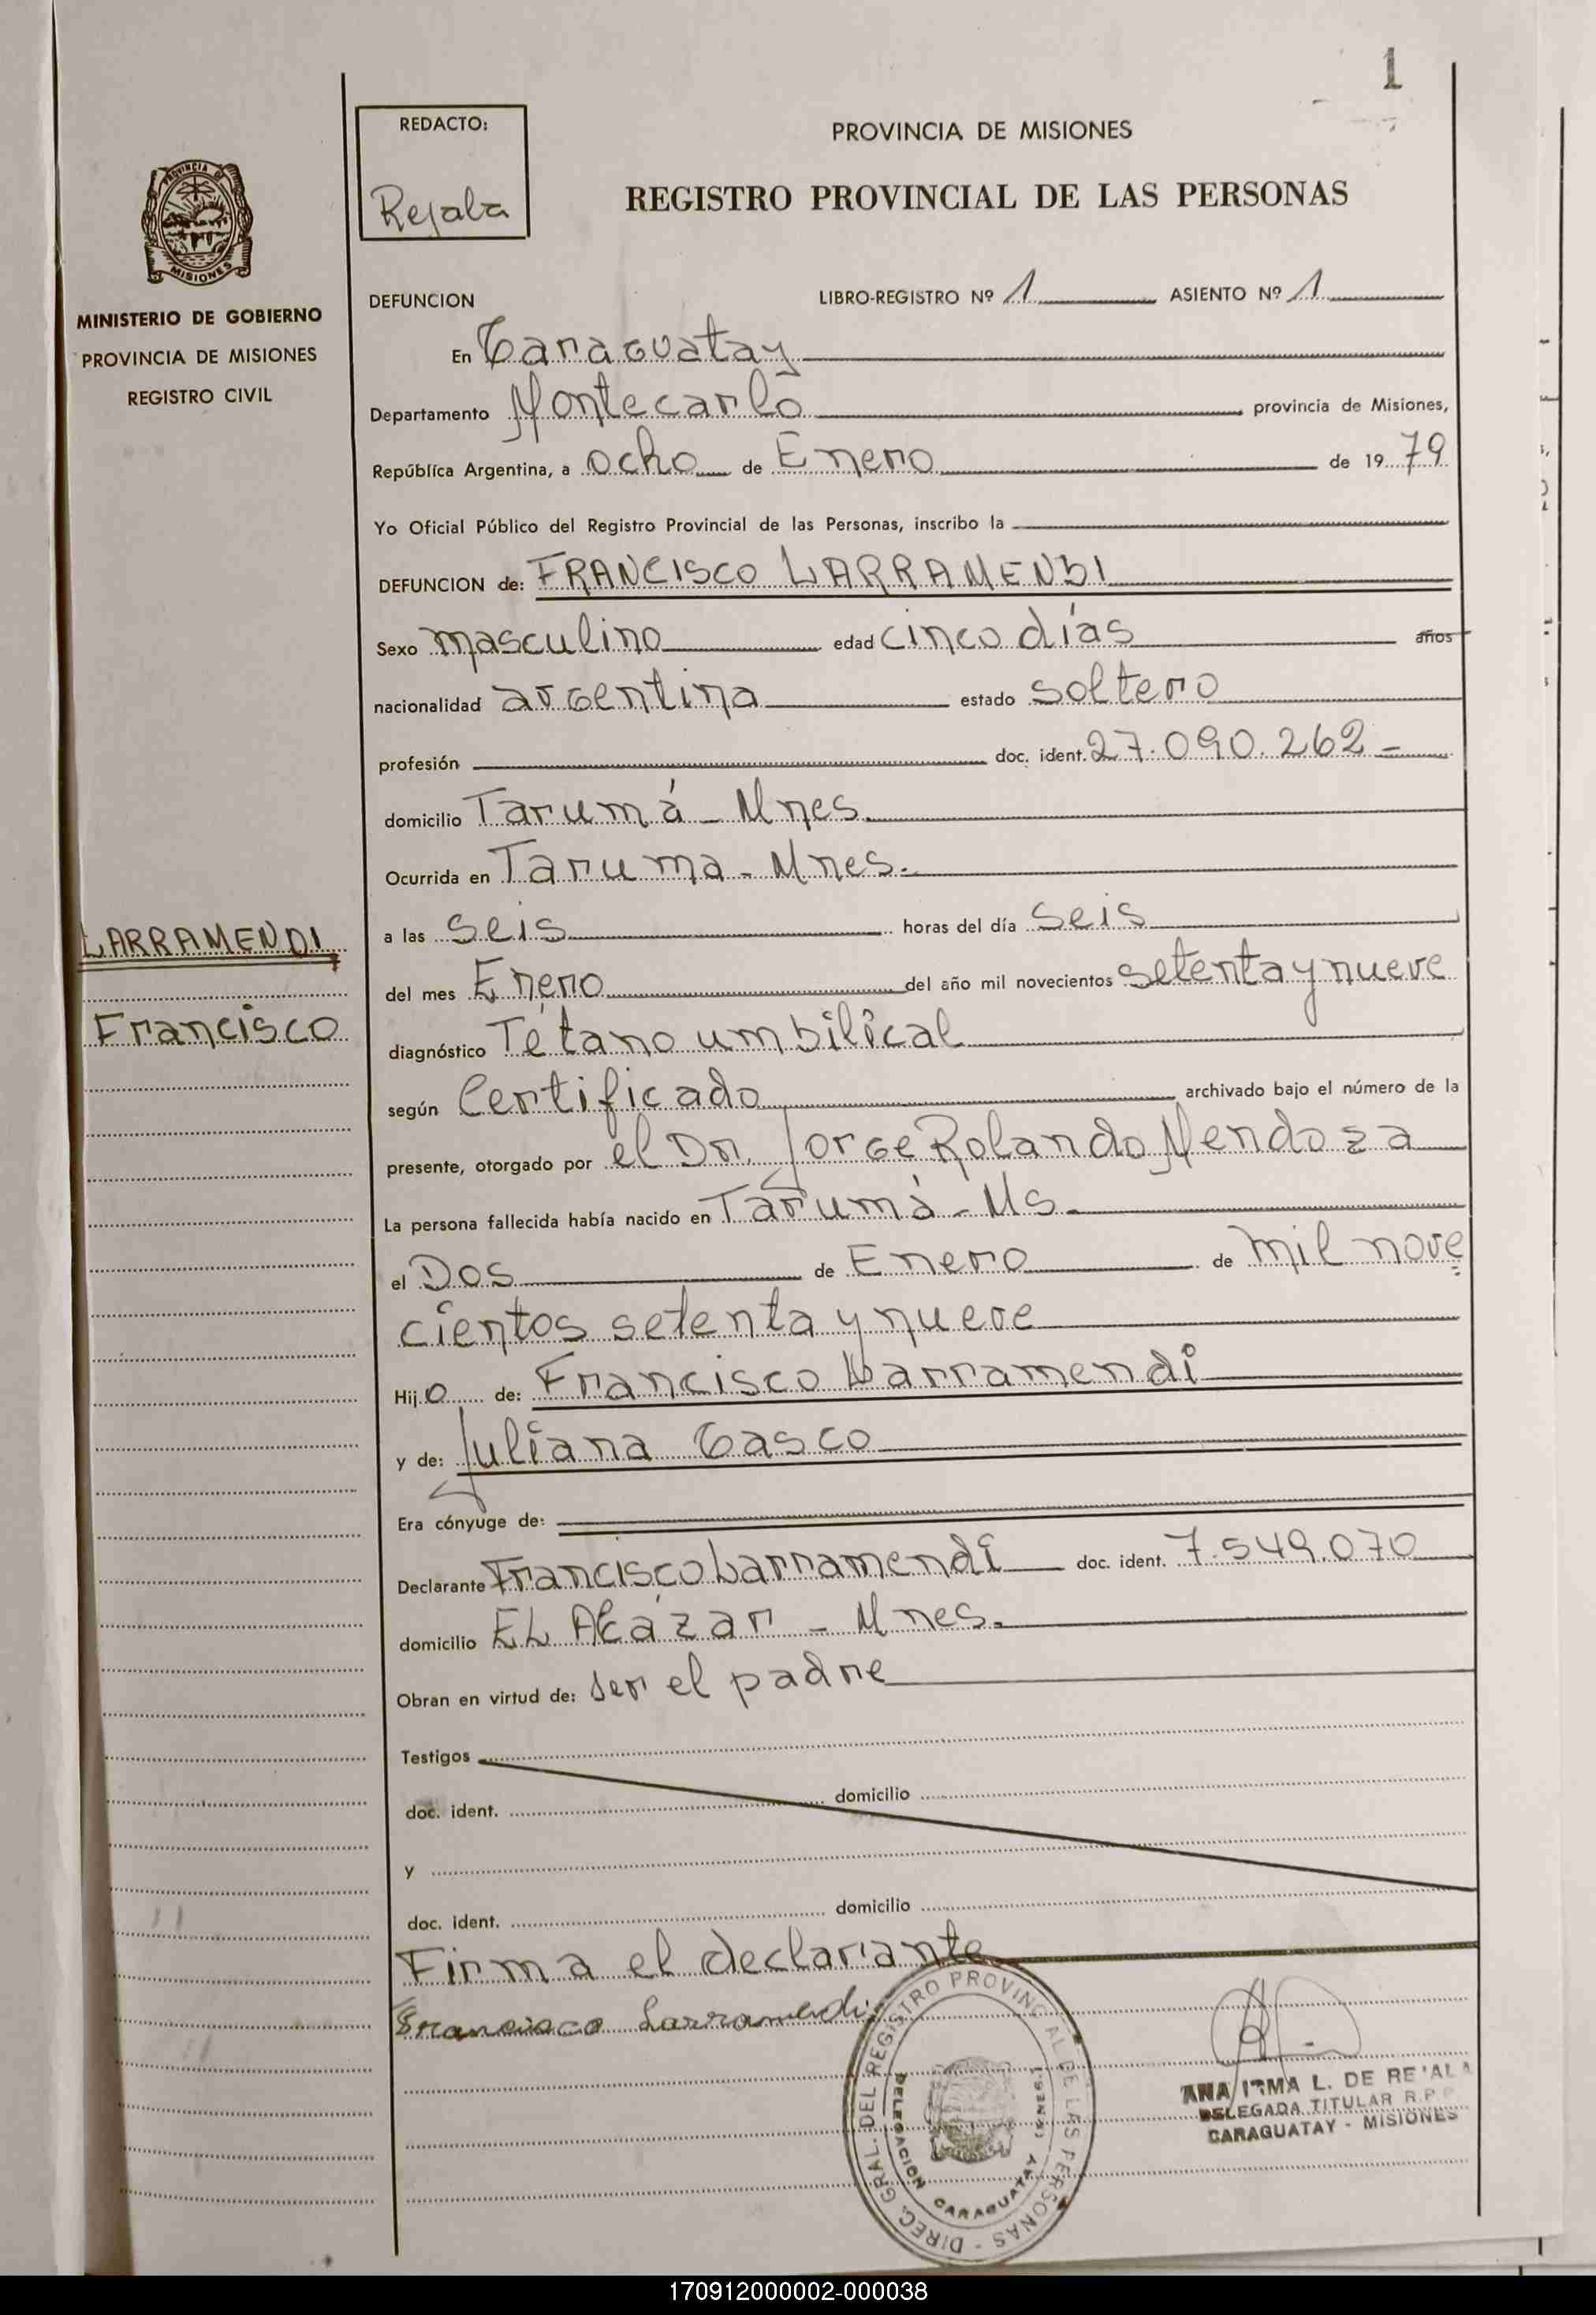 1
REDACTO:
Rejala
PROVINCIA DE MISIONES
REGISTRO PROVINCIAL DE LAS PERSONAS
PROVINCIA DE
MISIONES
MINISTERIO DE GOBIERNO
PROVINCIA DE MISIONES
REGISTRO CIVIL
DEFUNCION LIBRO-REGISTRO Nº 1 ASIENTO Nº 1
En Caraguatay
Departamento Montecarlo provincia de Misiones,
República Argentina, a ocho de Enero de 1979
Yo Oficial Público del Registro Provincial de las Personas, inscribo la
DEFUNCION de: FRANCISCO LARRAMENDI
Sexo masculino edad cinco días años
nacionalidad argentina estado soltero
profesión doc. ident. 27.090.262-
domicilio Tarumá - Mnes.
Ocurrida en Taruma - Mnes.
LARRAMENDI
Francisco
a las seis horas del día seis
del mes Enero del año mil novecientos setenta y nueve
diagnóstico Tétano umbilical
según Certificado archivado bajo el número de la
presente, otorgado por el Dr. Jorge Rolando Mendoza
La persona fallecida había nacido en Tarumá - Ms.
el Dos de Enero de mil nove
cientos setenta y nueve
Hijo de: Francisco Larramendi
y de: Juliana Casco
Era cónyuge de:
Declarante Francisco Larramendi doc. ident. 7.549.070
domicilio EL Alcázar - Mnes.
Obran en virtud de: ser el padre
Testigos
doc. ident. domicilio
y
doc. ident. domicilio
Firma el declarante
Francisco Larramendi
DIREC. GRAL. DEL REGISTRO PROVINCIAL DE LAS PERSONAS -
DELEGACION CARAGUATAY (MNES.)
ANA IRMA L. DE REJALA
DELEGADA TITULAR R.P.P.
CARAGUATAY - MISIONES
170912000002-000038